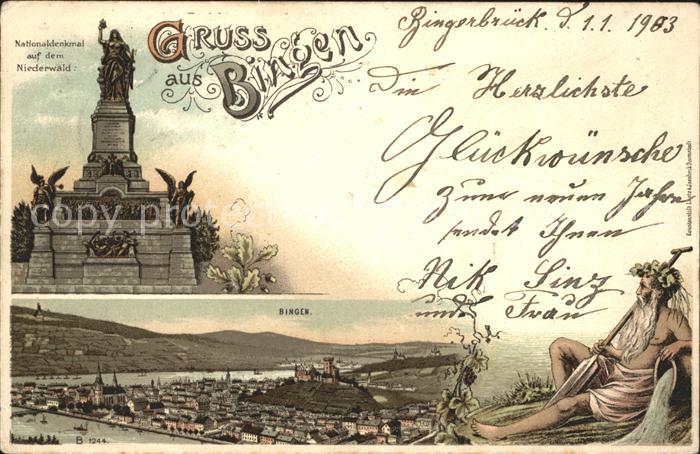 Nationaldenkmal
auf dem
Niederwald.
GRUSS
aus Bingen.
Bingerbrück. d. 1.1. 1903
Die Herzlichste
Glückwünsche
zum neuen Jahre
sendet Ihnen
Nik Sinz
und Frau
copy protected
BINGEN.
B 1244.